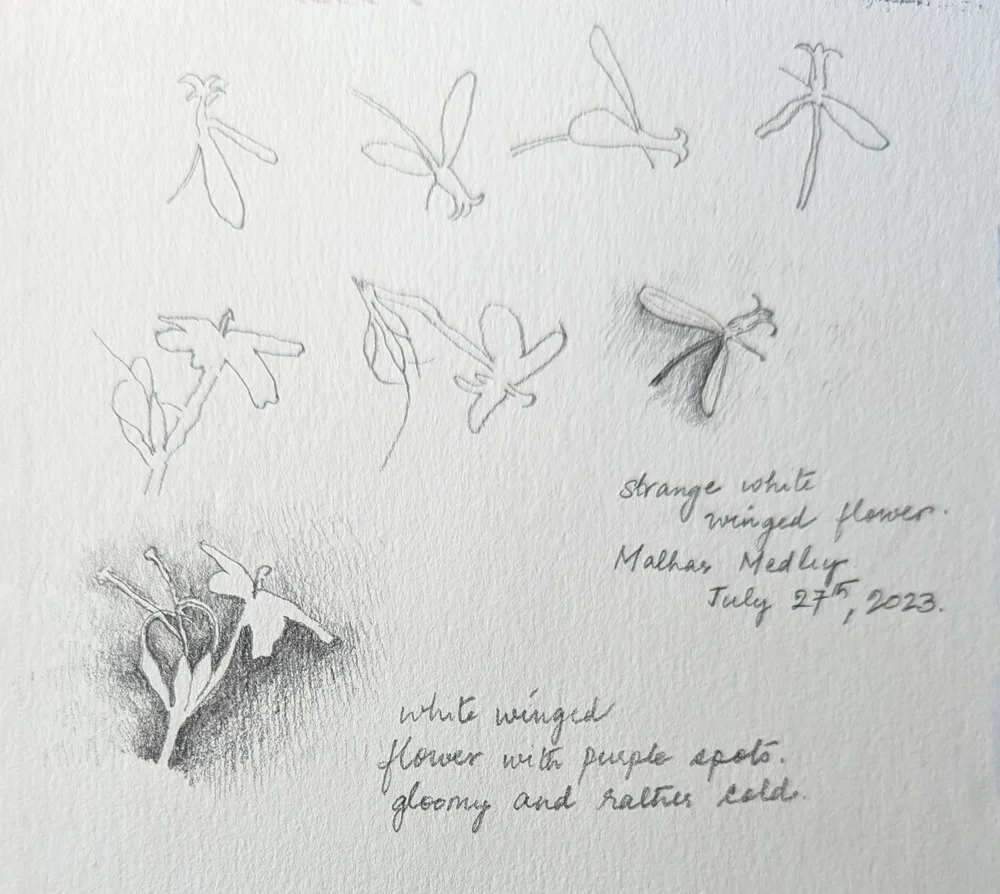 strange white
winged flower.
Malhar Medley
July 27th, 2023.
white winged
flower with purple spots.
gloomy and rather cold.